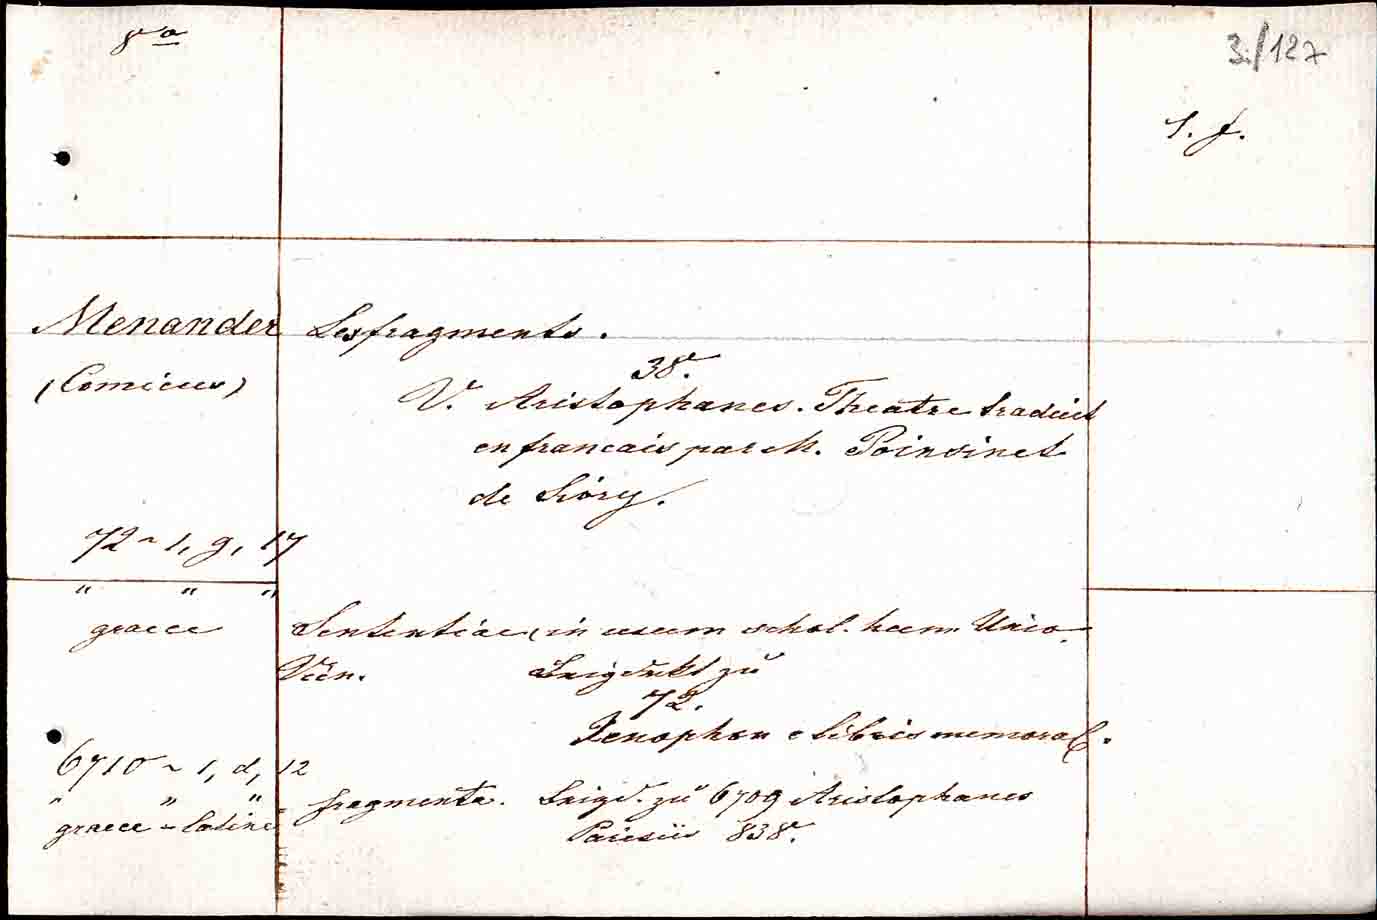 8a
3./127
S. f.
Menander Les fragments.
(Comicus)
38.
V. Aristophanes. Theatre traduit
en francais par M. Poinsinet
de Sivry.
72 ~ 1, g, 17
" " "
graece Sententiae in usum schol. hum. Univ.
Vien. zu
72.
Xenophon e libris memoral.
6710 ~ 1, d, 12
" " "
graece - latine fragmenta. zu 6709 Aristophanes
Parisiis 838.